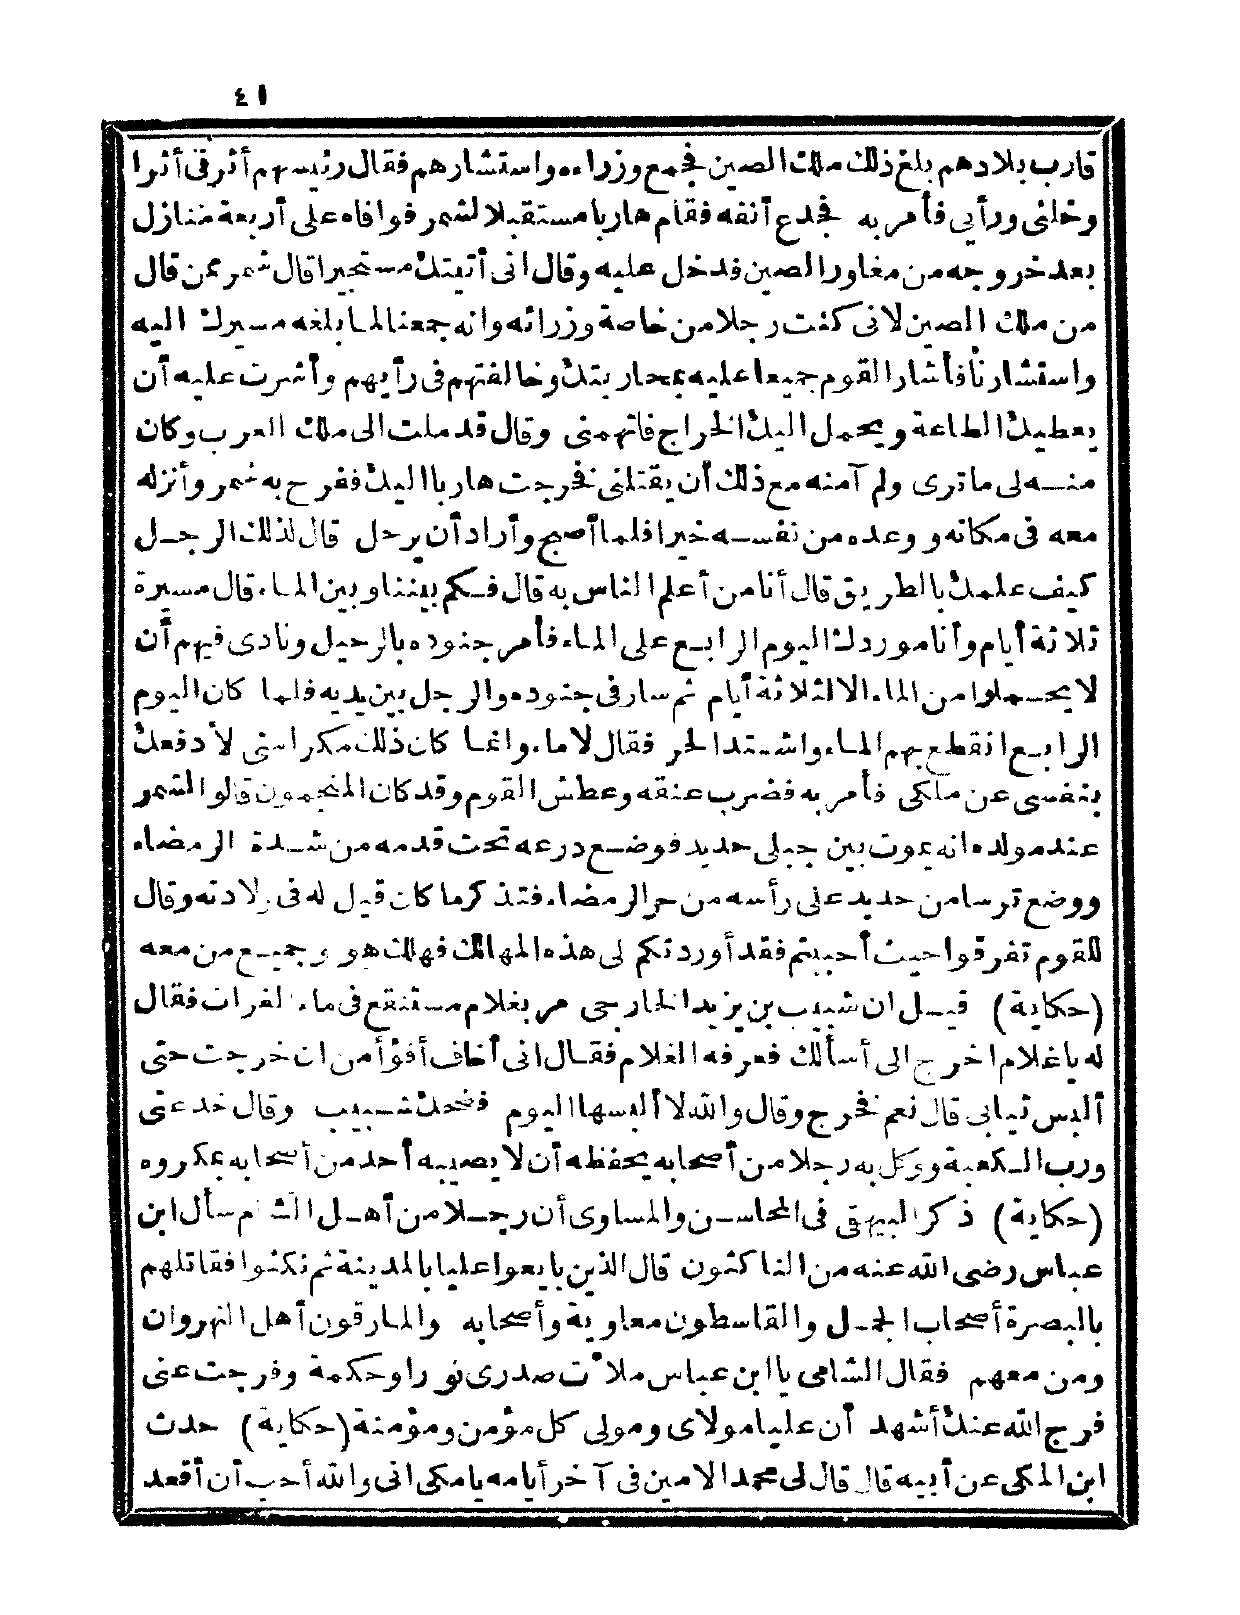 ٤١
قارب بلادهم بلغ ذلك ملك الصين فجمع وزراءه واستشارهم فقال رئيسهم أثر في أثرا
وخلنى ورأيى فأمر به فجدع أنفه فقام هاربا مستقبلا لشمر فوافاه على أربعة منازل
بعد خروجه من مغاور الصين فدخل عليه وقال انى أتيتك مستجيرا قال شمر ممن قال
من ملك الصين لانى كنت رجلا من خاصة وزرائه وانه جمعنا لما بلغه مسيرك اليه
واستشارنا فأشار القوم جميعا عليه بمحاربتك وخالفتهم فى رأيهم وأشرت عليه أن
يعطيك الطاعة ويحمل اليك الخراج فاتهمنى وقال قد ملت الى ملك العرب وكان
منه لى ما ترى ولم آمنه مع ذلك أن يقتلنى فخرجت هاربا اليك ففرح به شمر وأنزله
معه فى مكانه ووعده من نفسه خيرا فلما أصبح وأراد أن يرحل قال لذلك الرجل
كيف علمك بالطريق قال أنا من أعلم الناس به قال فكم بيننا وبين الماء قال مسيرة
ثلاثة أيام وأنا موردك اليوم الرابع على الماء فأمر جنوده بالرحيل ونادى فيهم أن
لا يحملوا من الماء الا لثلاثة أيام ثم سار فى جنوده والرجل بين يديه فلما كان اليوم
الرابع انقطع بهم الماء واشتد الحر فقال لا ماء وانما كان ذلك مكرا منى لأدفعك
بنفسى عن ملكى فأمر به فضرب عنقه وعطش القوم وقد كان المنجمون قالوا لشمر
عند مولده انه يموت بين جبلى حديد فوضع درعه تحت قدمه من شدة الرمضاء
ووضع ترسا من حديد على رأسه من حر الرمضاء فتذكر ما كان قيل له فى ولادته وقال
للقوم تفرقوا حيث أحببتم فقد أوردتكم لى هذه المهالك فهلك هو وجميع من معه
(حكاية) قيل ان شبيب بن يزيد الخارجى مر بغلام مستنقع فى ماء الفرات فقال
له يا غلام اخرج الى أسألك فعرفه الغلام فقال انى أخاف أفؤأمن ان خرجت حتى
ألبس ثيابى قال نعم فخرج وقال والله لا ألبسها اليوم فضحك شبيب وقال خدعنى
ورب الكعبة ووكل به رجلا من أصحابه يحفظه أن لا يصيبه أحد من أصحابه بمكروه
(حكاية) ذكر البيهقى فى المحاسن والمساوى أن رجلا من أهل الشام سأل ابن
عباس رضى الله عنه من الناكثون قال الذين بايعوا عليا بالمدينة ثم نكثوا فقاتلهم
بالبصرة أصحاب الجمل والقاسطون معاوية وأصحابه والمارقون أهل النهروان
ومن معهم فقال الشامى يا ابن عباس ملأت صدرى نورا وحكمة وفرجت عنى
فرج الله عنك أشهد أن عليا مولاى ومولى كل مؤمن ومؤمنة (حكاية) حدث
ابن المكى عن أبيه قال قال لى محمد الامين فى آخر أيامه يا مكى انى والله أحب أن أقعد